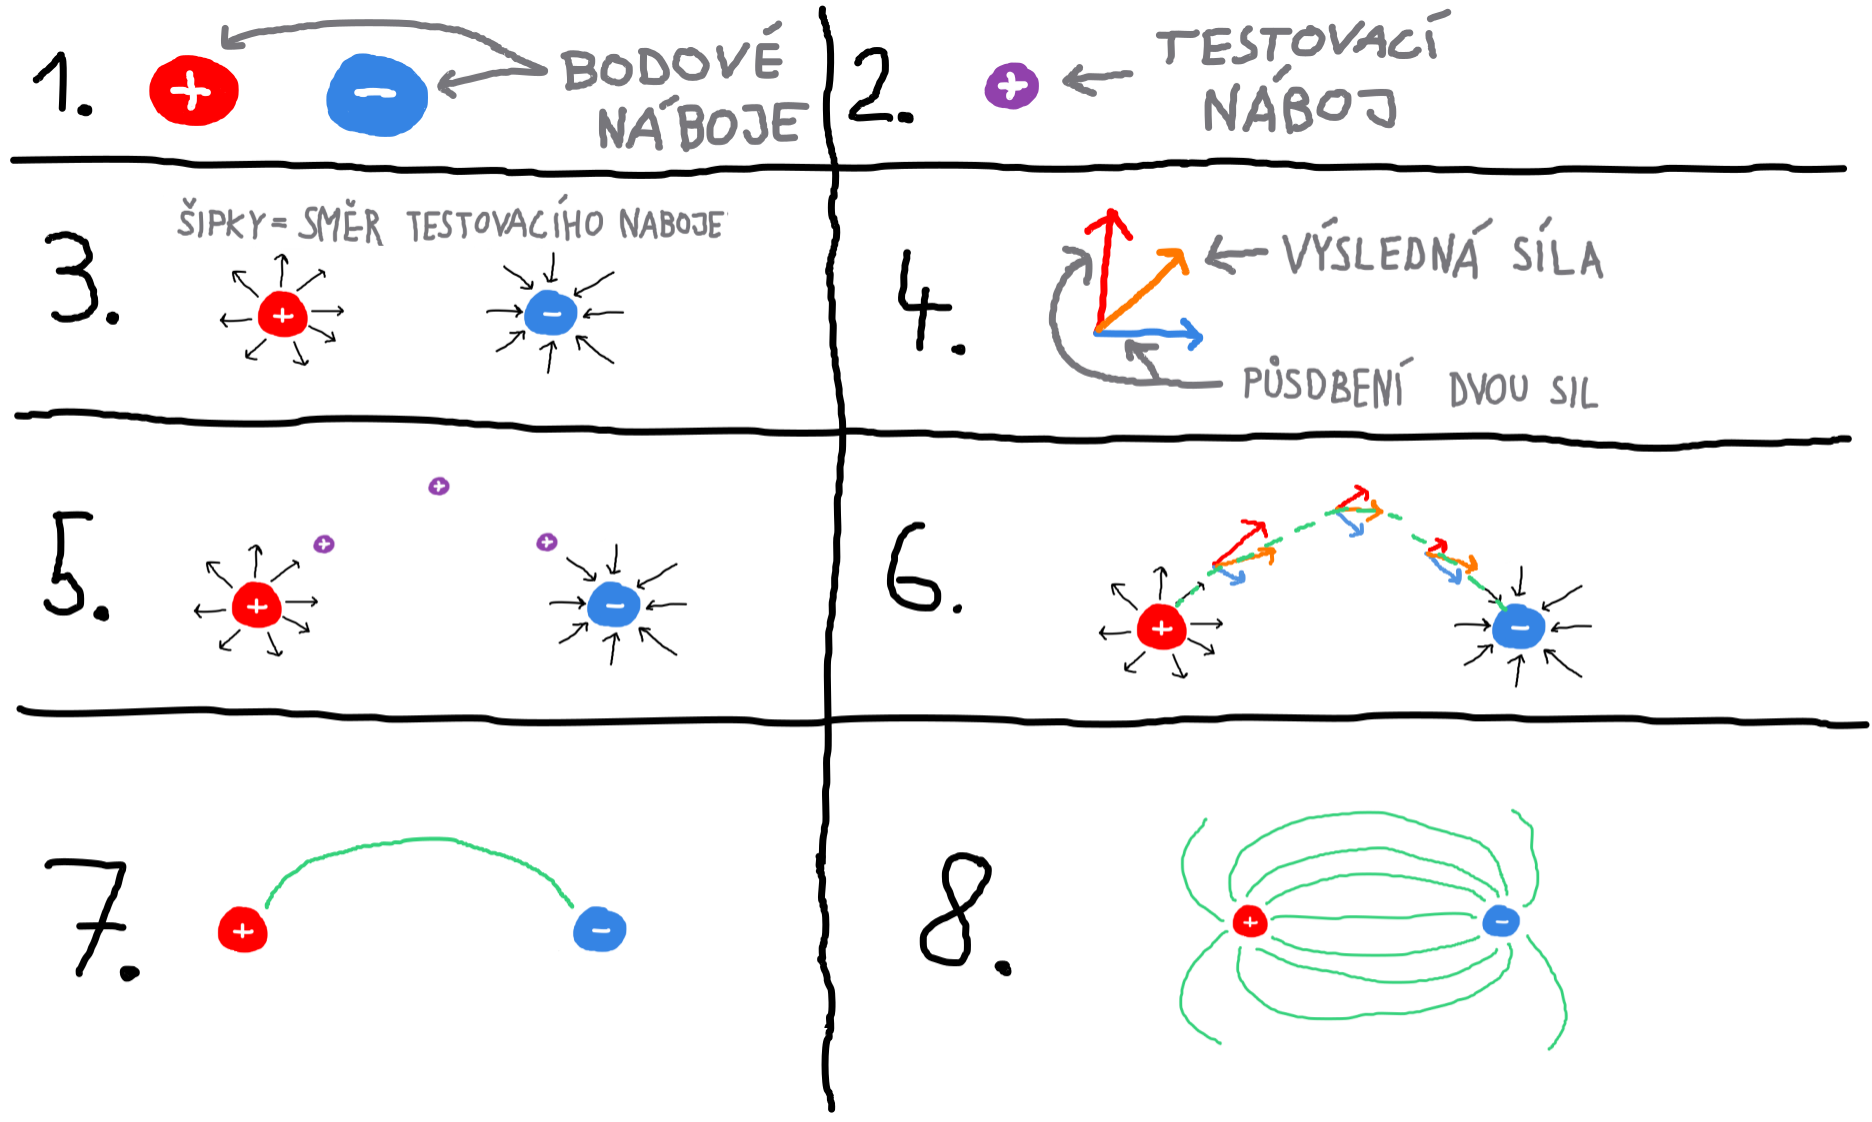 1. + - BODOVÉ
NÁBOJE
2. + TESTOVACÍ
NÁBOJ
3. ŠIPKY = SMĚR TESTOVACÍHO NABOJE
+ -
4. VÝSLEDNÁ SÍLA
PŮSDBENÍ DVOU SIL
5. + + +
+ -
6. + -
7. + -
8. + -